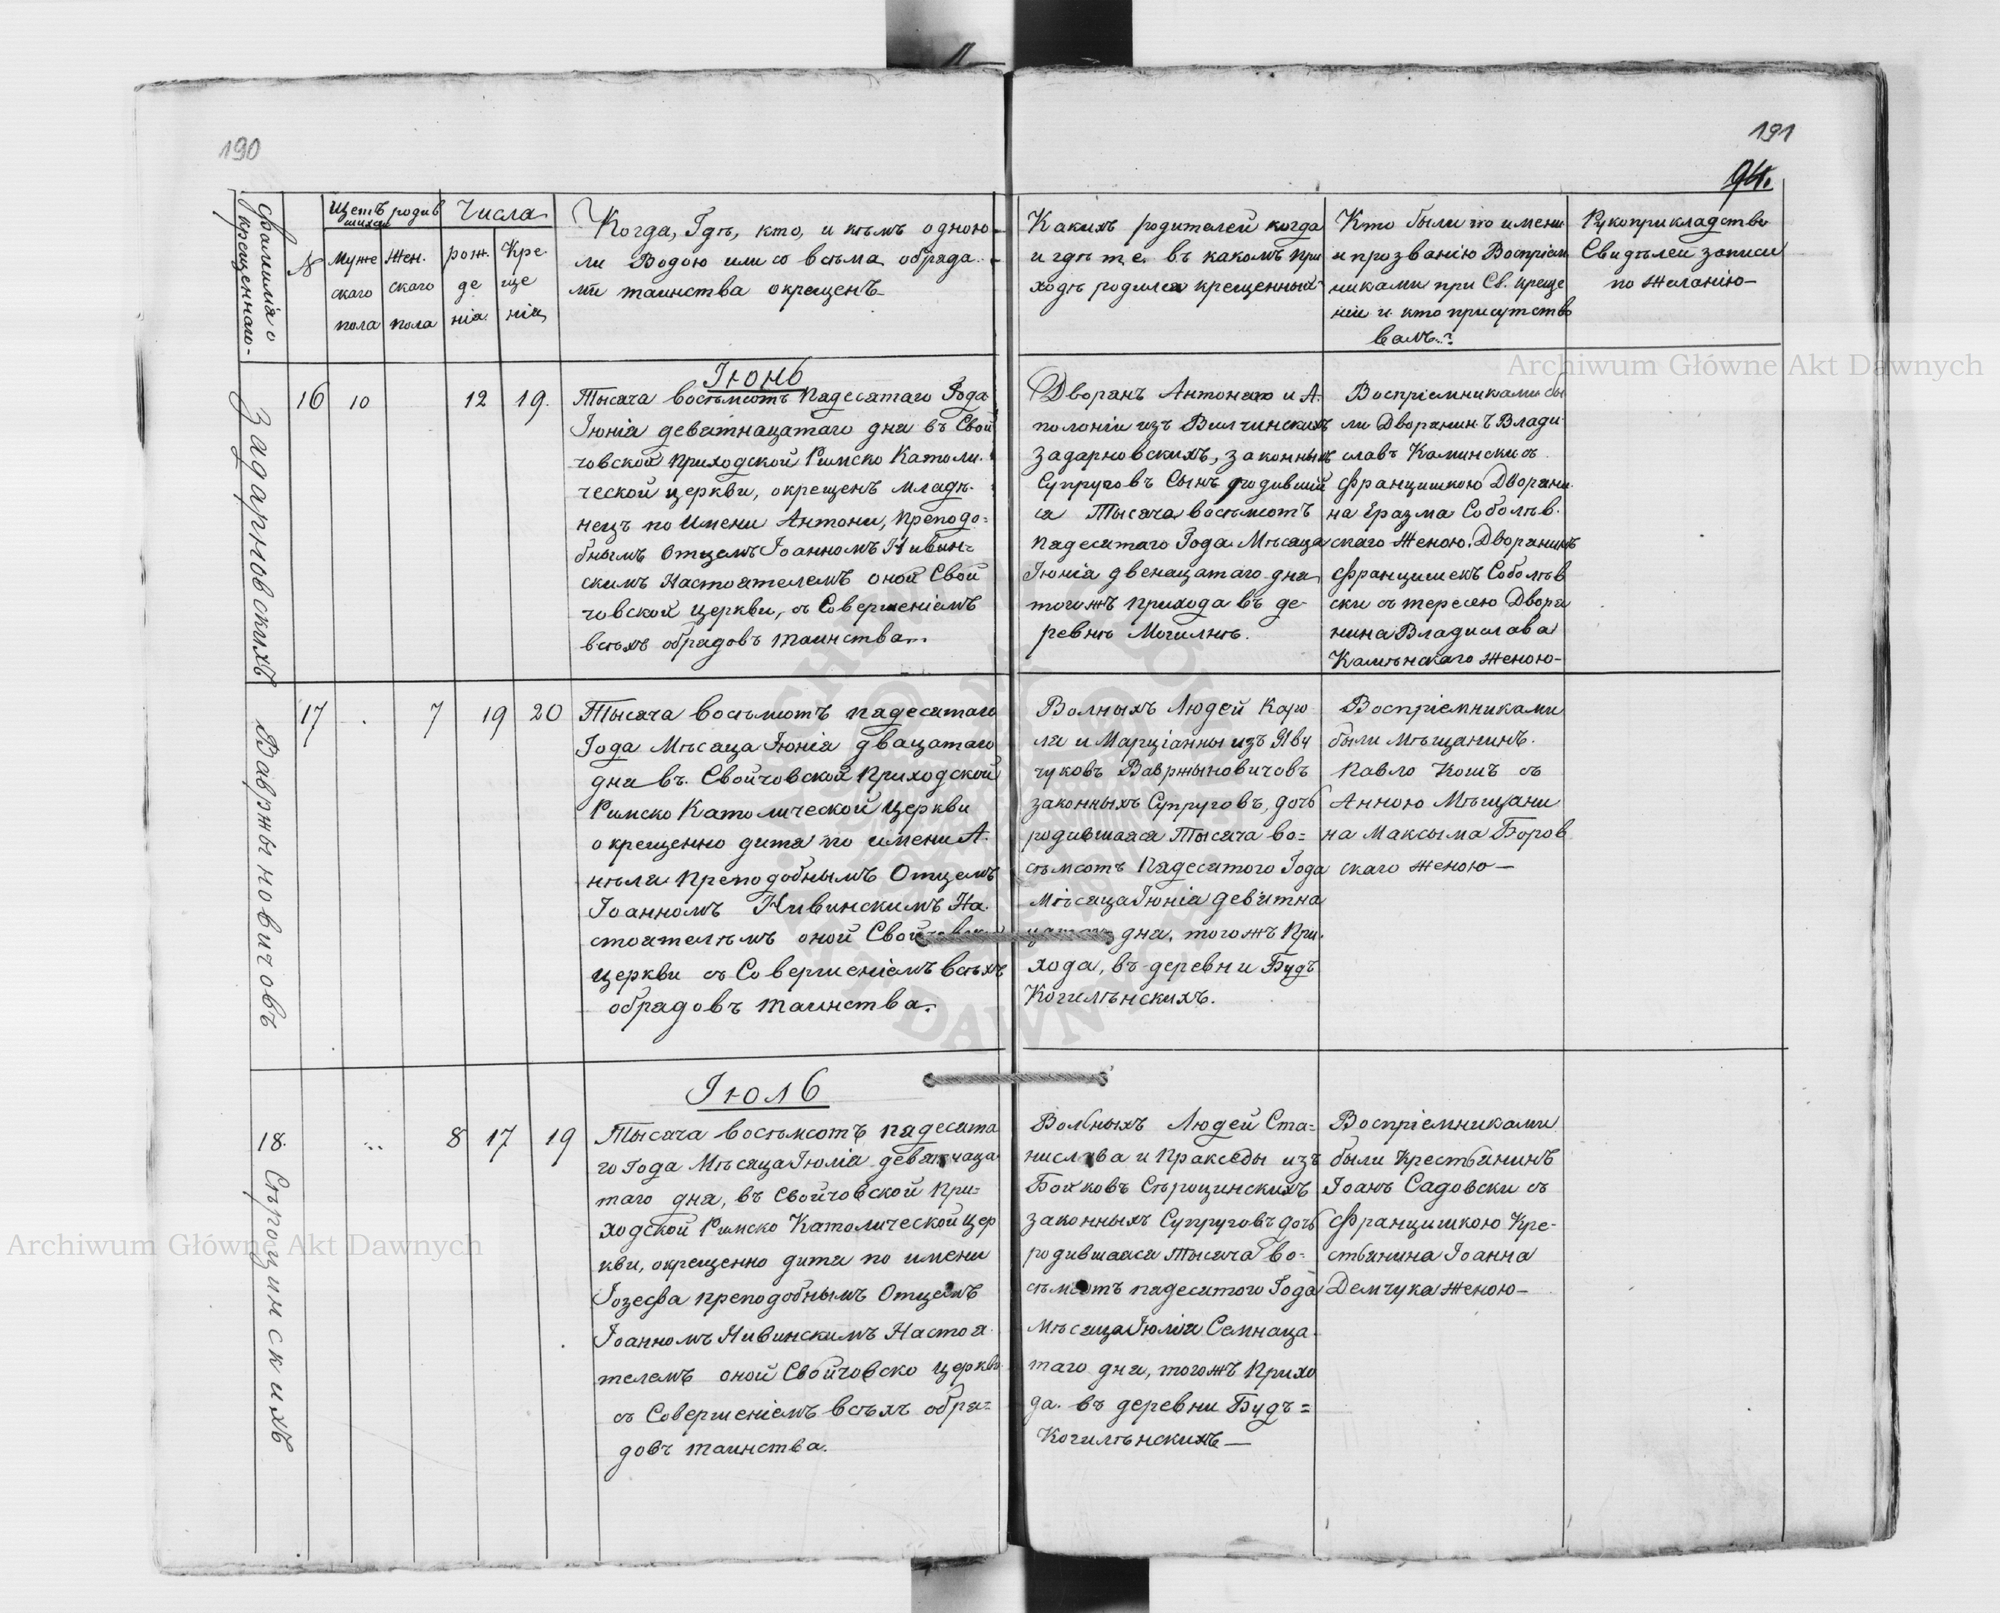 190
191
94.
Фамилія о
крещеннаго-
№
Щетъ родив
шихся
Муже
скаго
пола
Жен.
скаго
пола
Числа
рож.
де
нія.
Кре
ще
нія
Когда, Гдѣ, кто, и кѣмъ одною
ли Водою или со всѣма обряда-
ми таинства окрещенъ
Какихъ родителей когда
и гдѣ те. въ какомъ при
ходѣ родился крещенный
Кто были по имени
и прозванію Воспріем
никами при Св. креще
ніи и кто присутство
валъ.?
Рукоприкладство
Свидѣлей записи
по желанію-
Задарновскихъ
16
10
12
19.
Іюнь
Тысяча восѣмсотъ Пядесятаго Года
Іюнія девятнацатаго дня въ Свой
човской Приходской Римско Католи.
ческой церкви, окрещенъ младѣ-
нецъ по Имени Антони, Преподо=
бнымъ Отцемъ Іоанномъ Нивин=
скимъ Настоятелемъ оной Свой
човской церкви, съ Совершеніемъ
всѣхъ обрядовъ таинства..
Дворянъ Антонаго и А.
полоніи изъ Вилчинскихъ
Задарновскихъ, законныхъ
Супруговъ Сынъ родивший
ся Тысяча восѣмсотъ
пядесятаго Года Мѣсяца
Іюнія двенацатаго дня
тогожъ прихода въ де-
ревнѣ Могилнѣ.
Воспріемниками бы
ли Дворянинъ Влади-
славъ Камински съ
Францишкою Дворяни-
на Еразма Соболѣв.
скаго женою. Дворянинъ
Францишекъ Соболѣв
ски съ тересею Дворя
нина Владислава
Камѣнскаго женою-
Вавржыновичовъ
17
7
19
20
Тысяча восѣмсотъ пядесятаго
Года Мѣсяца Іюнія двацатаго
дня въ Свойчовской Приходской
Римско Католической Церкви
окрещенно дитя по имени А.
нѣля Преподобнымъ Отцемъ
Іоанномъ Нивинскимъ На-
стоятелѣмъ оной
церкви съ Совершеніемъ всѣхъ
обрядовъ таинства.
Волныхъ Людей Каро
ля и Марціанны изъ Явч
чуковъ Вавржыновичовъ
законныхъ Супруговъ, дочь
родившаяся Тысяча во=
сѣмсотъ Пядесятого Года
Мѣсяца Іюнія девятна
дня, тогожъ При-
хода, въ деревни Будъ
Когилѣнскихъ.
Воспріемниками
были Мѣщанинъ.
Павло Кошъ съ
Анною Мѣщани
на Максыма Боров
скаго женою—
Сѣрощинскихъ
18.
8
17
19
Іюль
Тысяча восѣмсотъ пядесята
го Года Мѣсяца Іюлія девятнаца
таго дня, въ Свойчовской При=
ходской Римско Католической Цер
кви, окрещенно дитя по имени
Іозефа Преподобнымъ Отцемъ
Іоанномъ Нивинскимъ Настоя
телемъ оной Свойчовско церкви
съ Совершеніемъ всѣхъ обря=
довъ таинства.
Вольныхъ Людей Ста=
нислава и Пракседы изъ
Бойковъ Сѣрощинскихъ
законныхъ Супруговъ дочь
родившаяся Тысяча во=
сѣмсотъ пядесятого Года
Мѣсяца Іюлія Семнаца-
таго дня, тогожъ Прихо
да. въ деревни Будъ=
Когилѣнскихъ—
Воспріемниками
были Крестьянинъ
Іоанъ Садовски съ
Францишкою Кре-
стьянина Іоанна
Демчука женою—
Archiwum Główne Akt Dawnych
Archiwum Główne Akt Dawnych